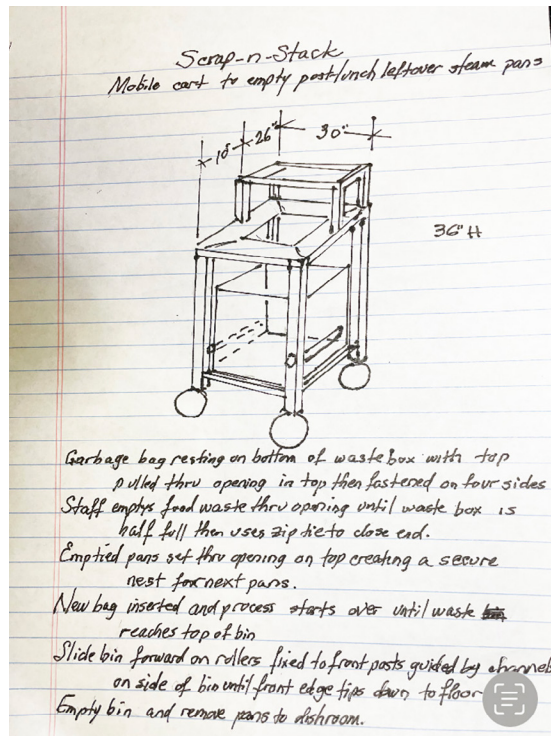 Scrap-n-Stack
Mobile cart to empty post/lunch leftover steam pans
10" 26" 30"
36" H
Garbage bag resting on bottom of waste box with top
pulled thru opening in top then fastened on four sides
Staff emptys food waste thru opening until waste box is
half full then uses zip tie to close end.
Emptied pans set thru opening on top creating a secure
nest for next pans.
New bag inserted and process starts over until waste
reaches top of bin
Slide bin forward on rollers fixed to front posts guided by channels
on side of bin until front edge tips down to floor
Empty bin and remove pans to dishroom.